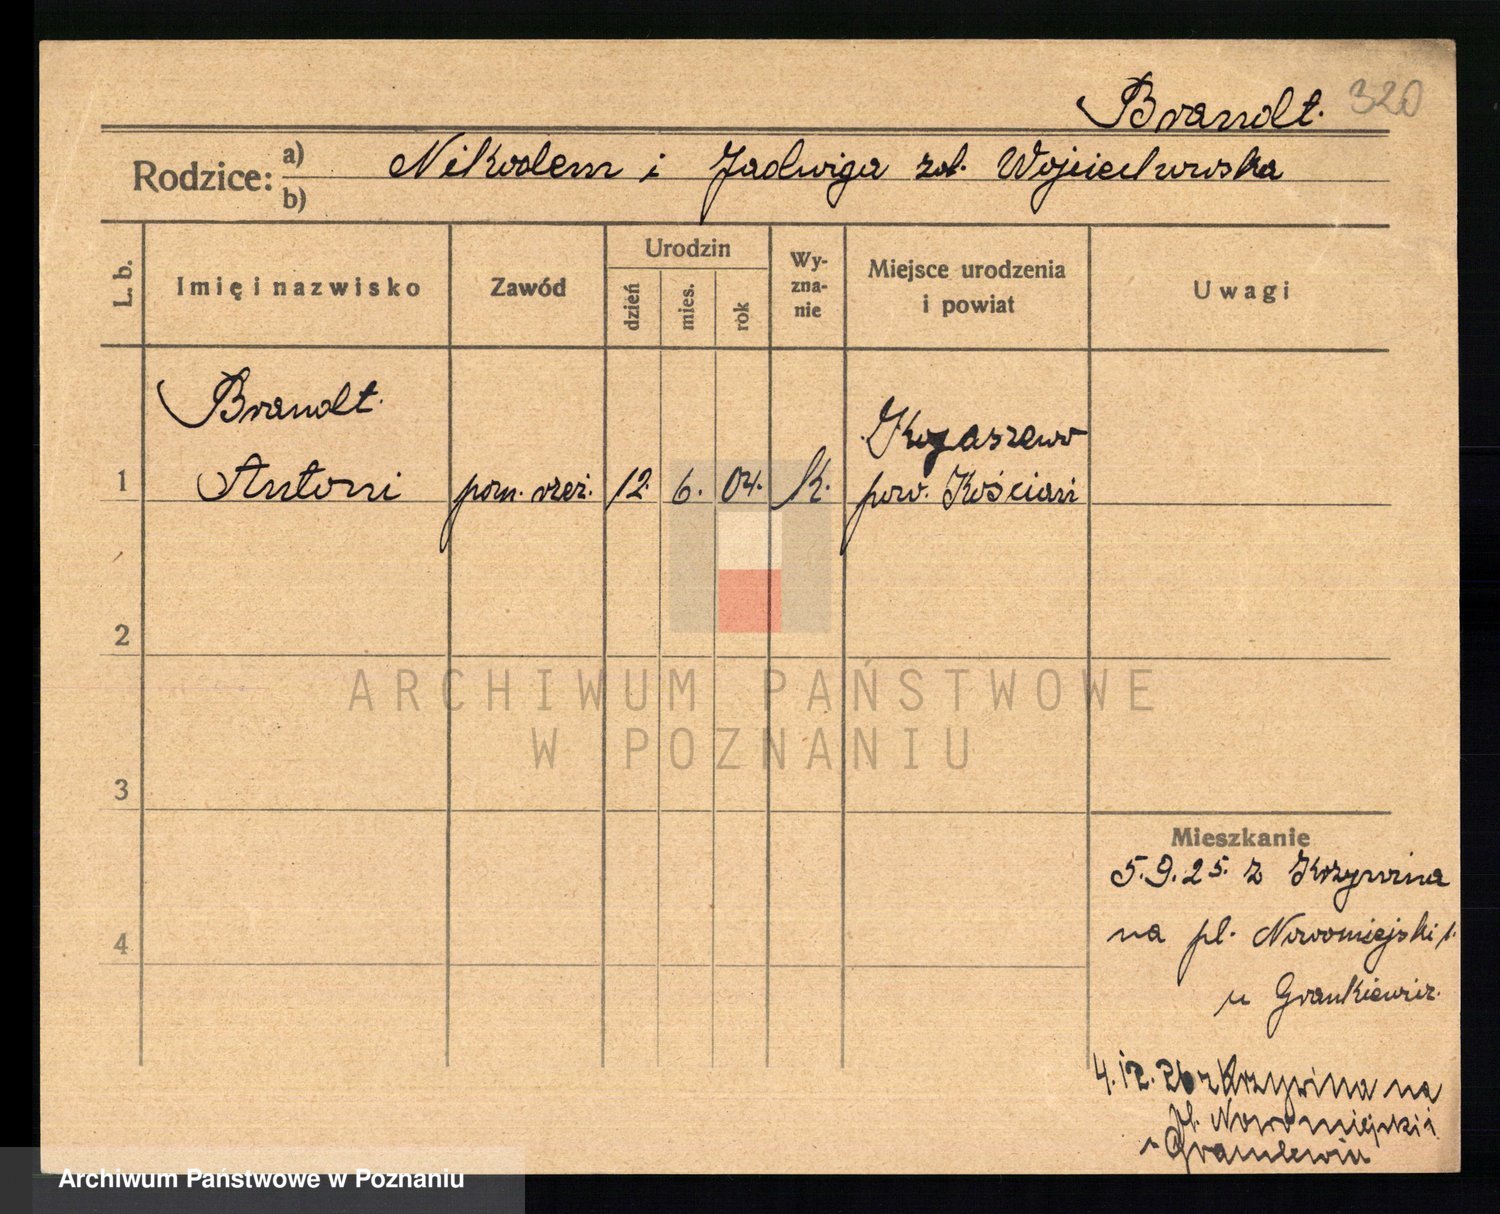 Brandt. 320
Rodzice: a) Nikodem i Jadwiga zd. Wojciechowska
b)
L. b.
Imię i nazwisko
Zawód
Urodzin
dzień
mies.
rok
Wy-
zna-
nie
Miejsce urodzenia
i powiat
Uwagi
Brandt.
1 Antoni pom. rzeź. 12. 6. 04. k.
pow. Kościan
2
3
4
ARCHIWUM PAŃSTWOWE
W POZNANIU
Mieszkanie
5.9.25. z Krzywina
na pl. Nowomiejski
u Grankiewicz.
4.12.26 z Krzywina na
pl. Nowomiejski
Archiwum Państwowe w Poznaniu